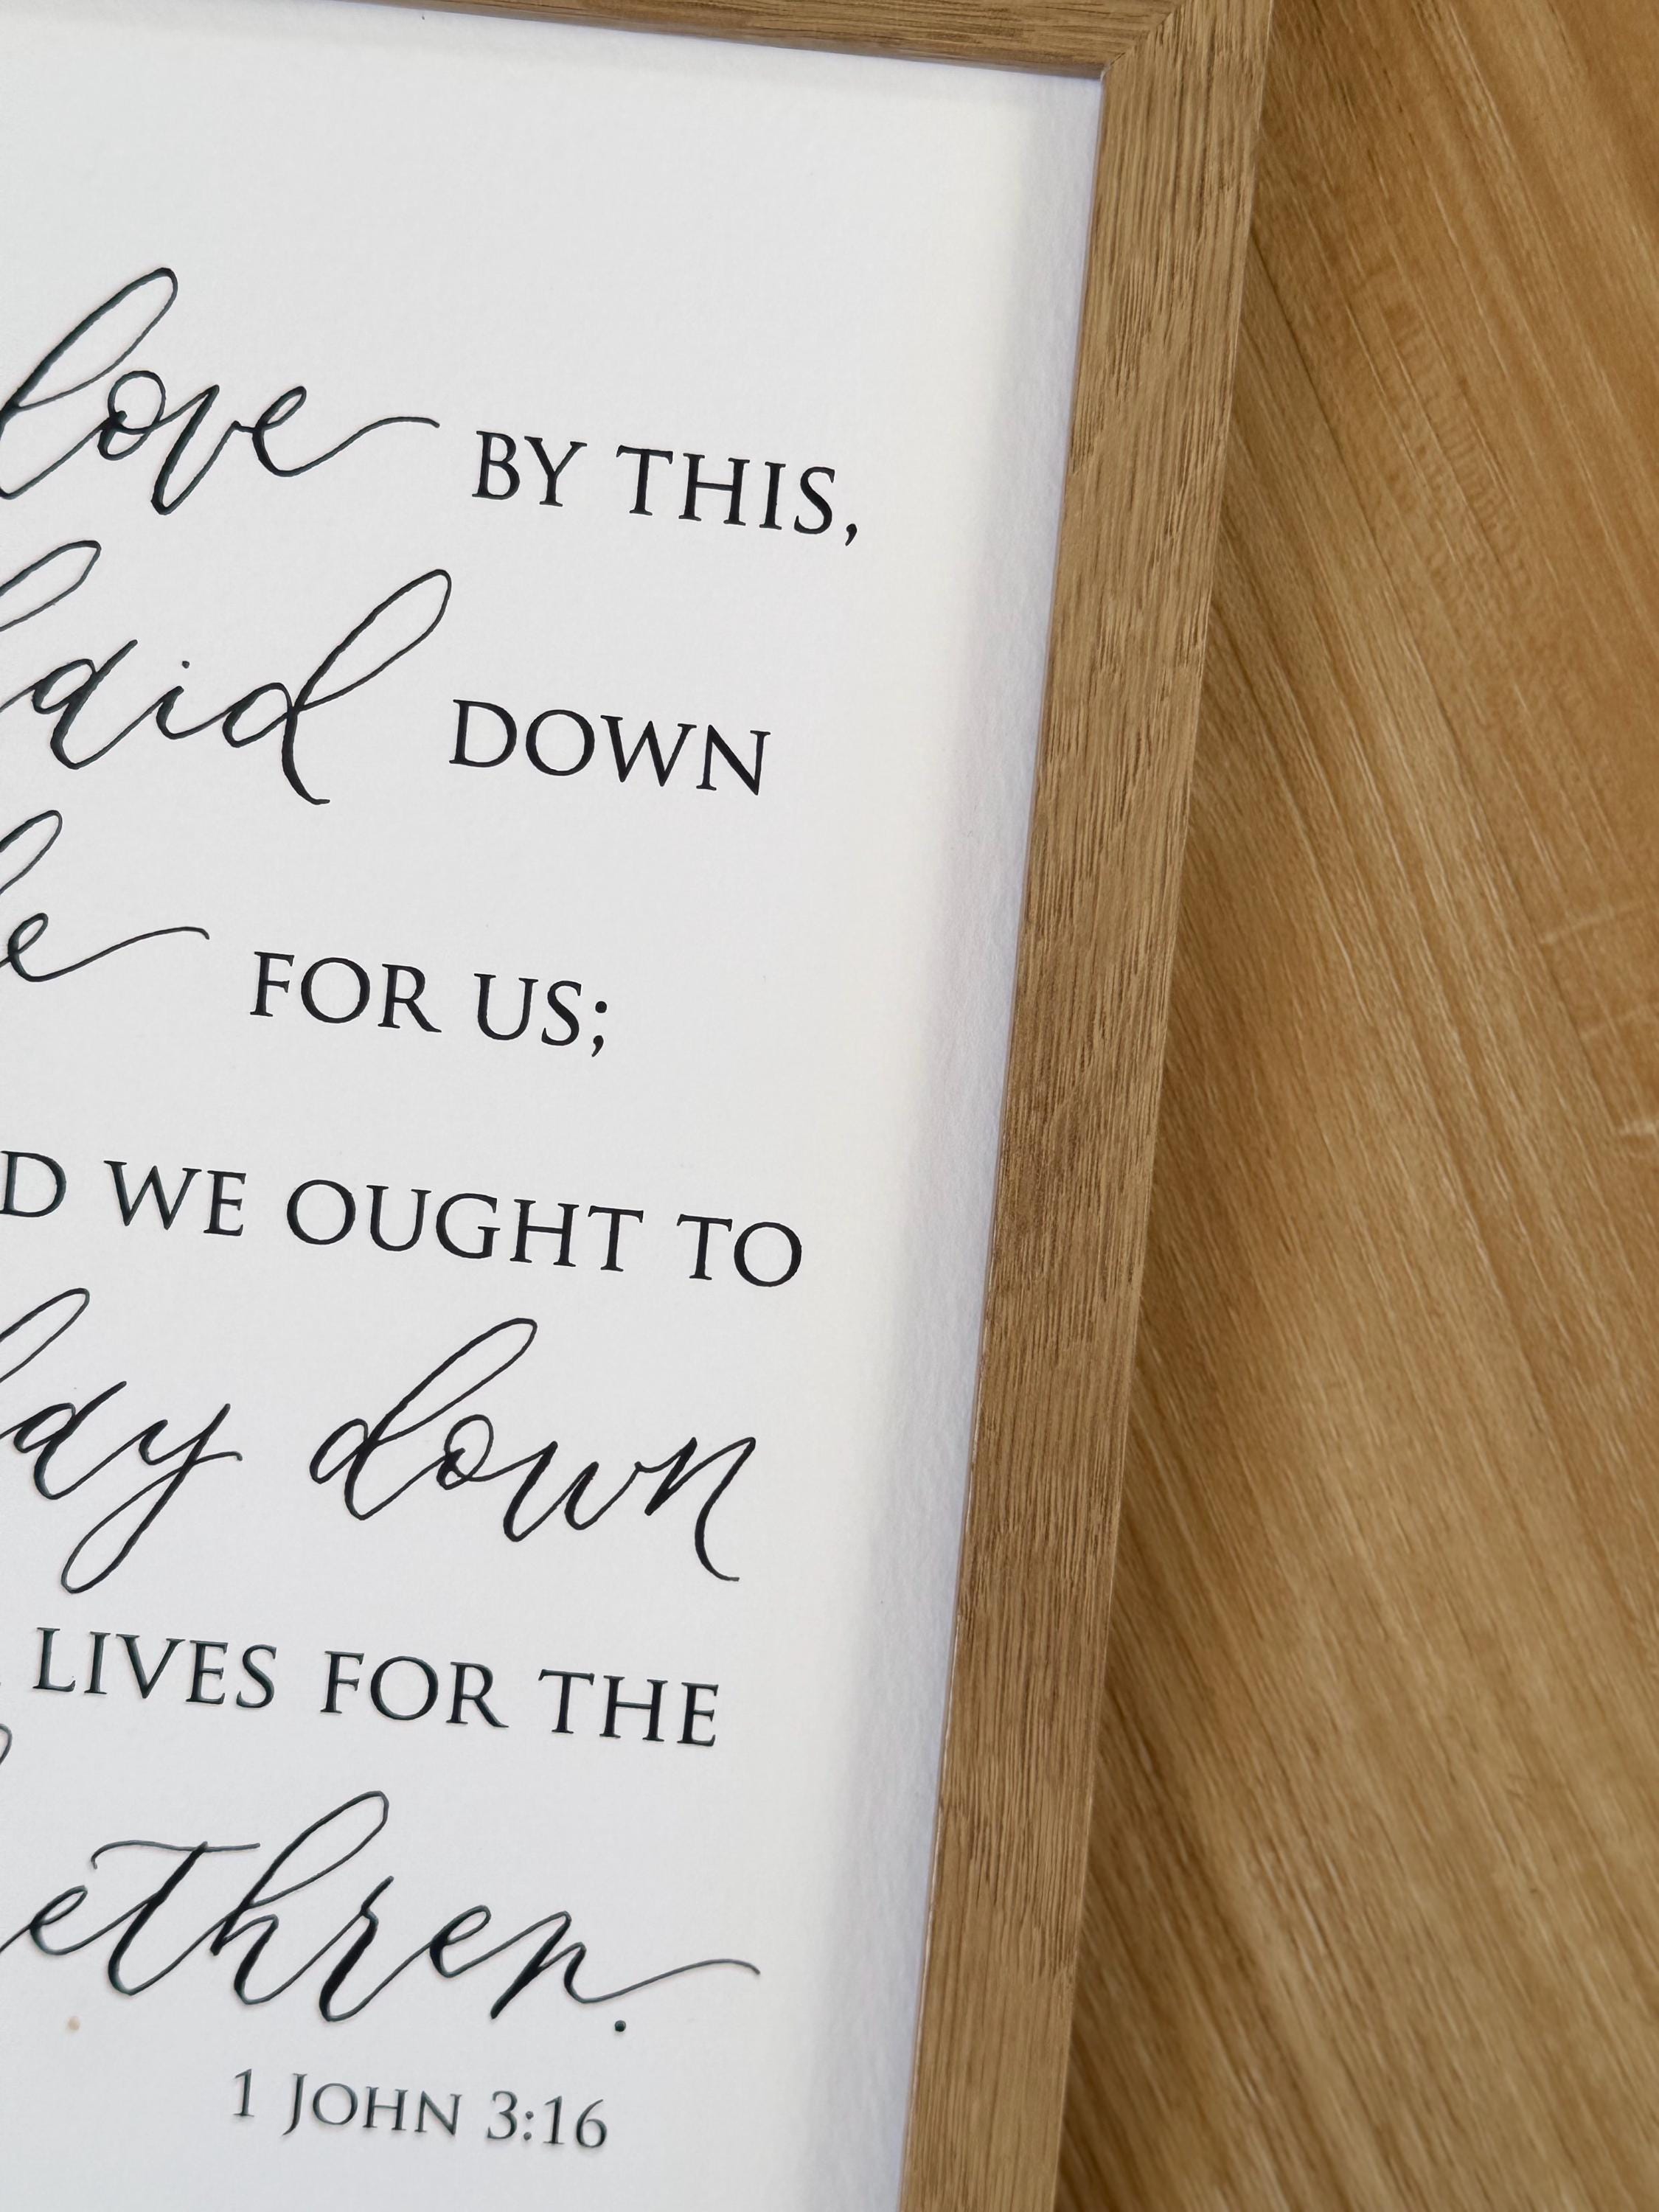 love BY THIS,
laid DOWN
FOR US;
WE OUGHT TO
lay down
LIVES FOR THE
ethren.
1 JOHN 3:16